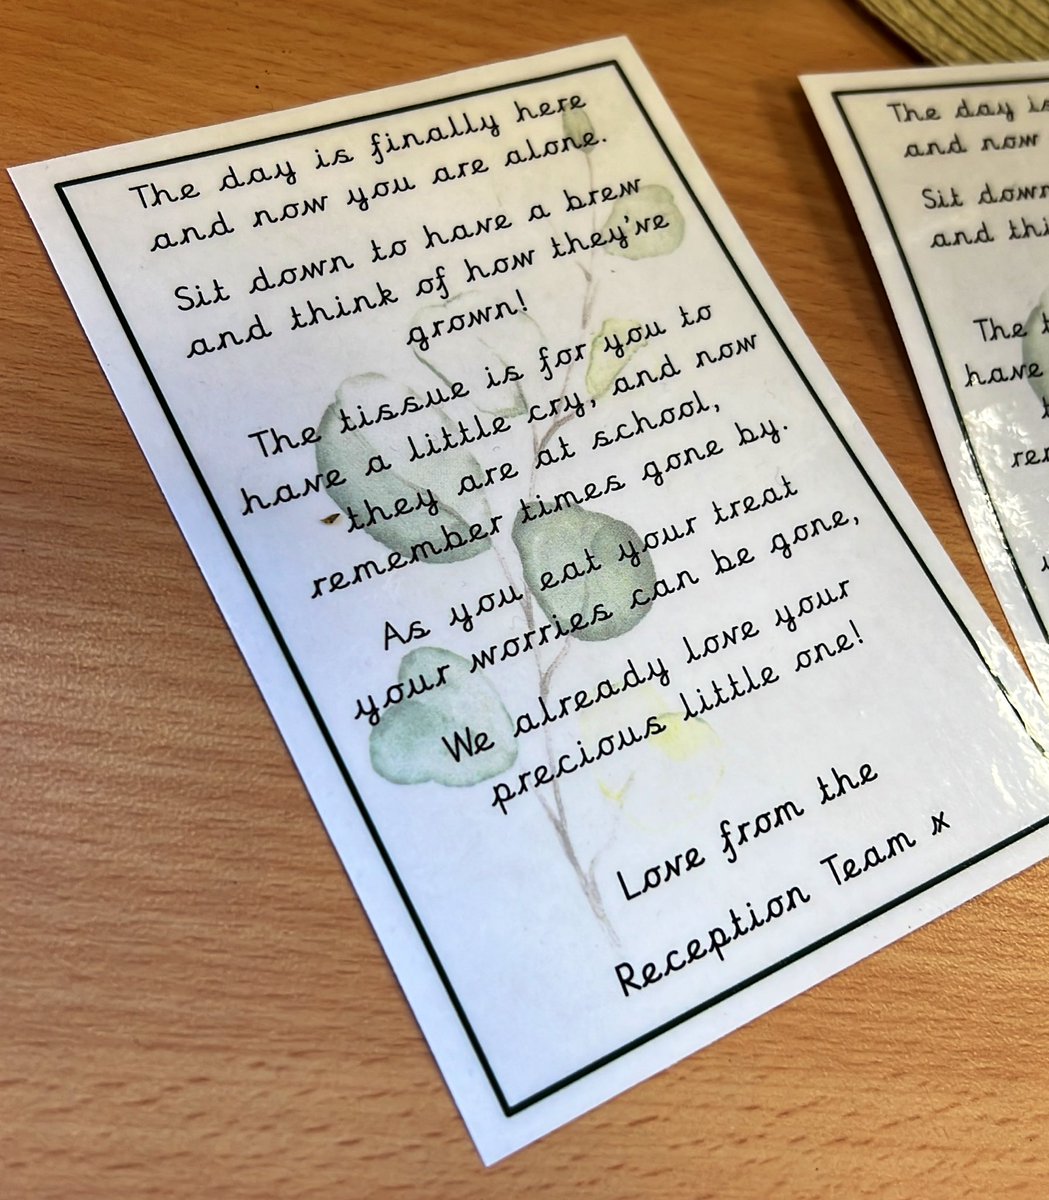 The day is finally here
and now you are alone.
Sit down to have a brew
and think of how they've
grown!
The tissue is for you to
have a little cry, and now
they are at school,
remember times gone by.
As you eat your treat
your worries can be gone,
We already love your
precious little one!
Love from the
Reception Team x
The day is
and now
Sit down
and thi
The t
have
t
rem